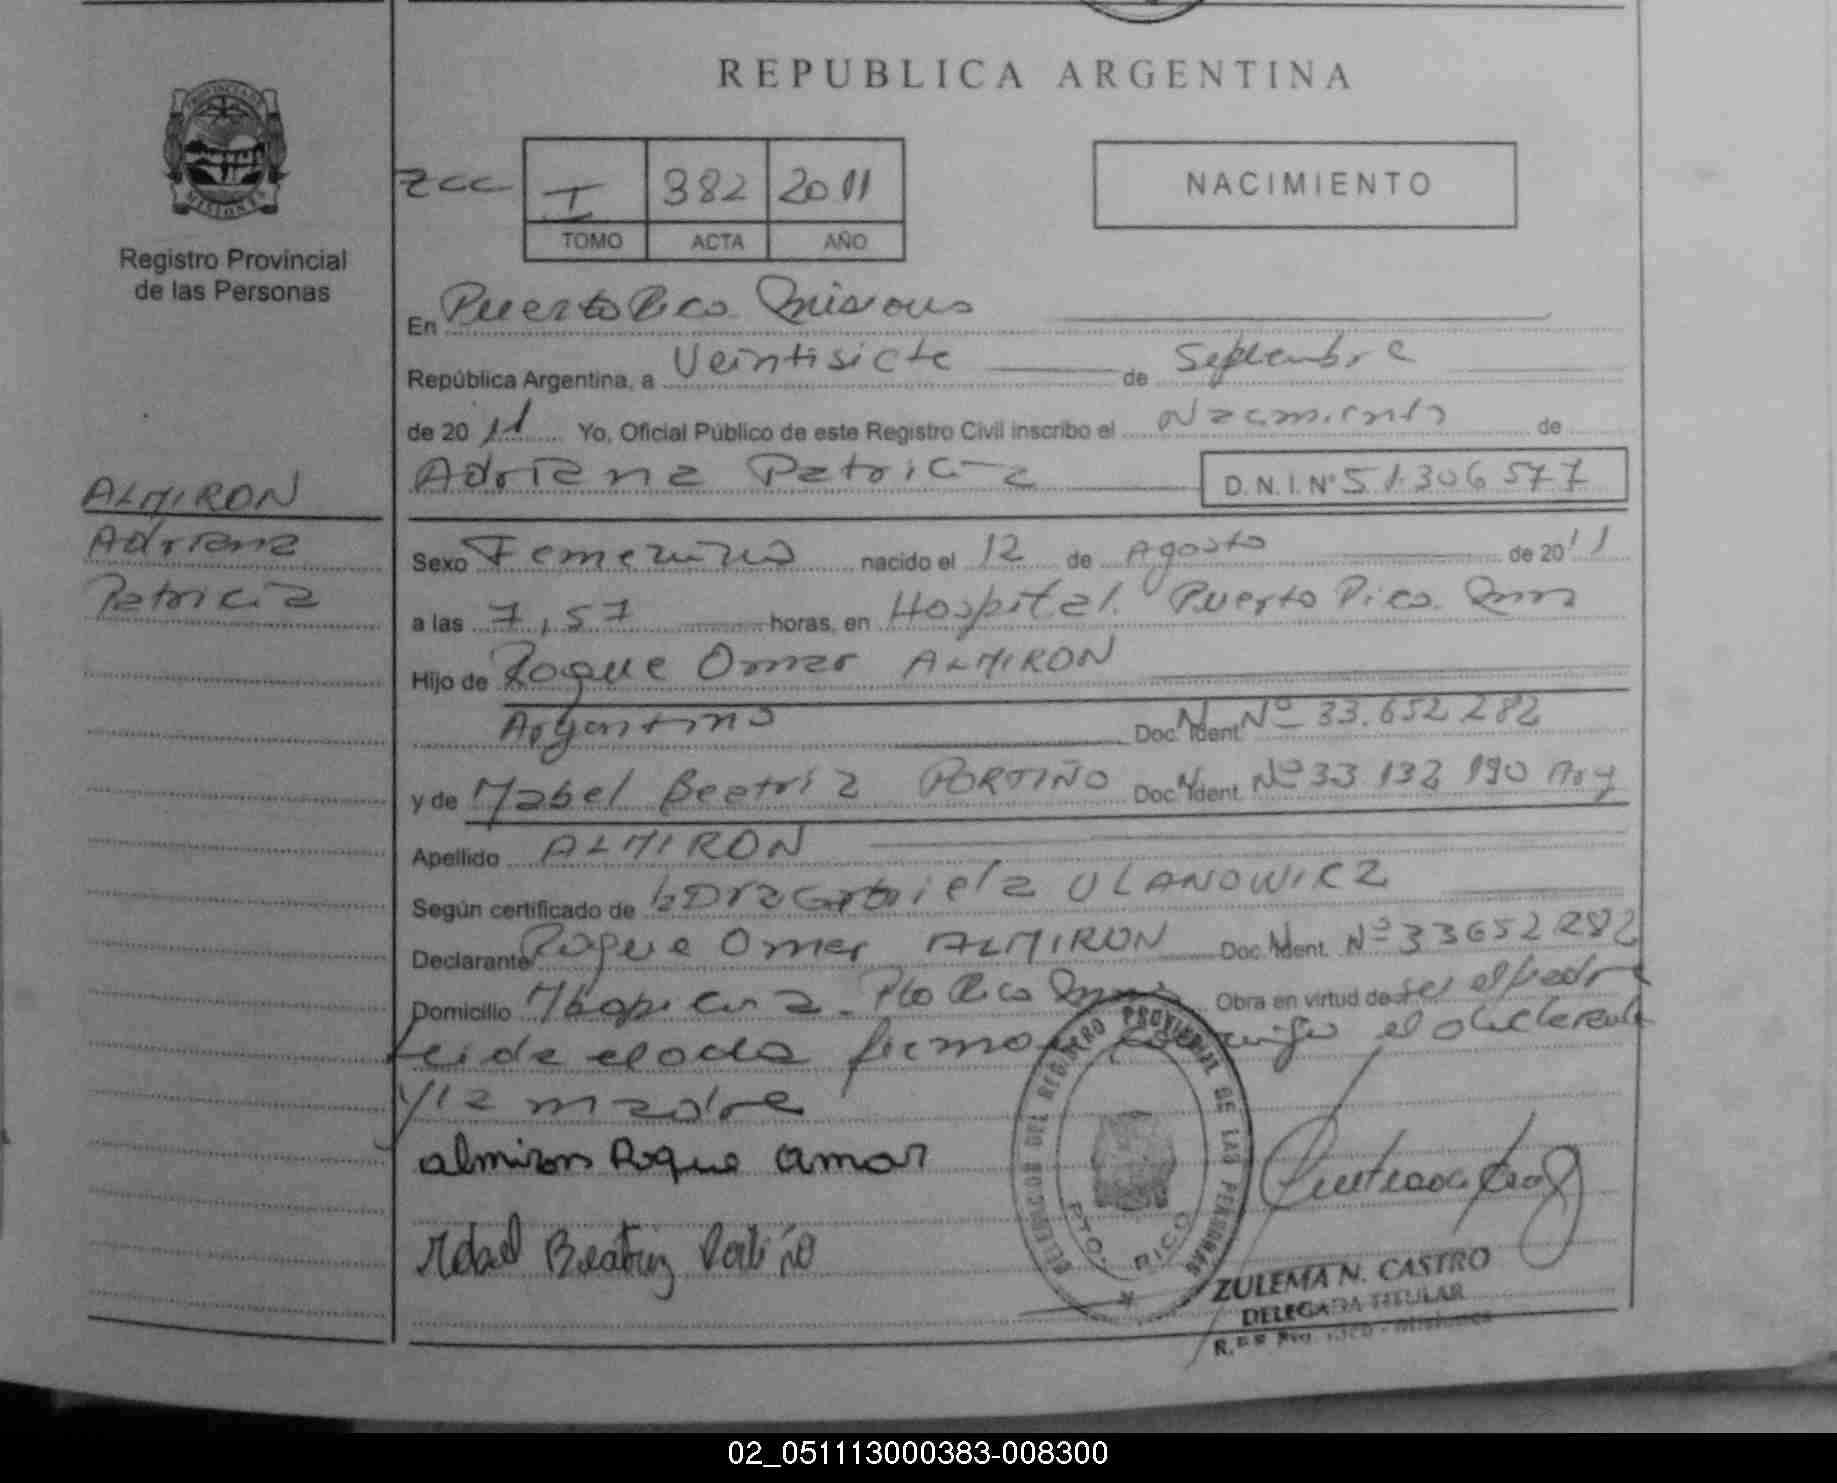 REPUBLICA ARGENTINA
PROVINCIA DE
MISIONES
Registro Provincial
de las Personas
I 382 2011
TOMO ACTA AÑO
NACIMIENTO
En Puerto Rico Misiones
República Argentina, a Veintisiete de Septiembre
de 2011 Yo, Oficial Público de este Registro Civil inscribo el Nacimiento de
Adriana Patricia D.N.I. Nº 51.306 577
ALMIRON
Adriana
Patricia
Sexo Femenino nacido el 12 de Agosto de 2011
a las 7,57 horas, en Hospital. Puerto Rico.
Hijo de Roque Omar ALMIRON
Argentino Doc. N. Ident. Nº 33.652 282
y de Mabel Beatriz PORTIÑO Doc. N. Ident. Nº 33 132 190 Arg
Apellido ALMIRON
Según certificado de la Dra Gabriela ULANOWICZ
Declarante Roque Omar ALMIRON Doc. N. Ident. Nº 33652282
Domicilio Pto Rico Obra en virtud de ser el padre
Leida el acta firman el declarante
y la madre
almiron Roque Omar
Mabel Beatriz Portiño
DELEGACIO DEL REGISTRO PROVINCIAL DE LAS PERSONAS
PTO. RICO
ZULEMA N. CASTRO
DELEGADA TITULAR
02_051113000383-008300